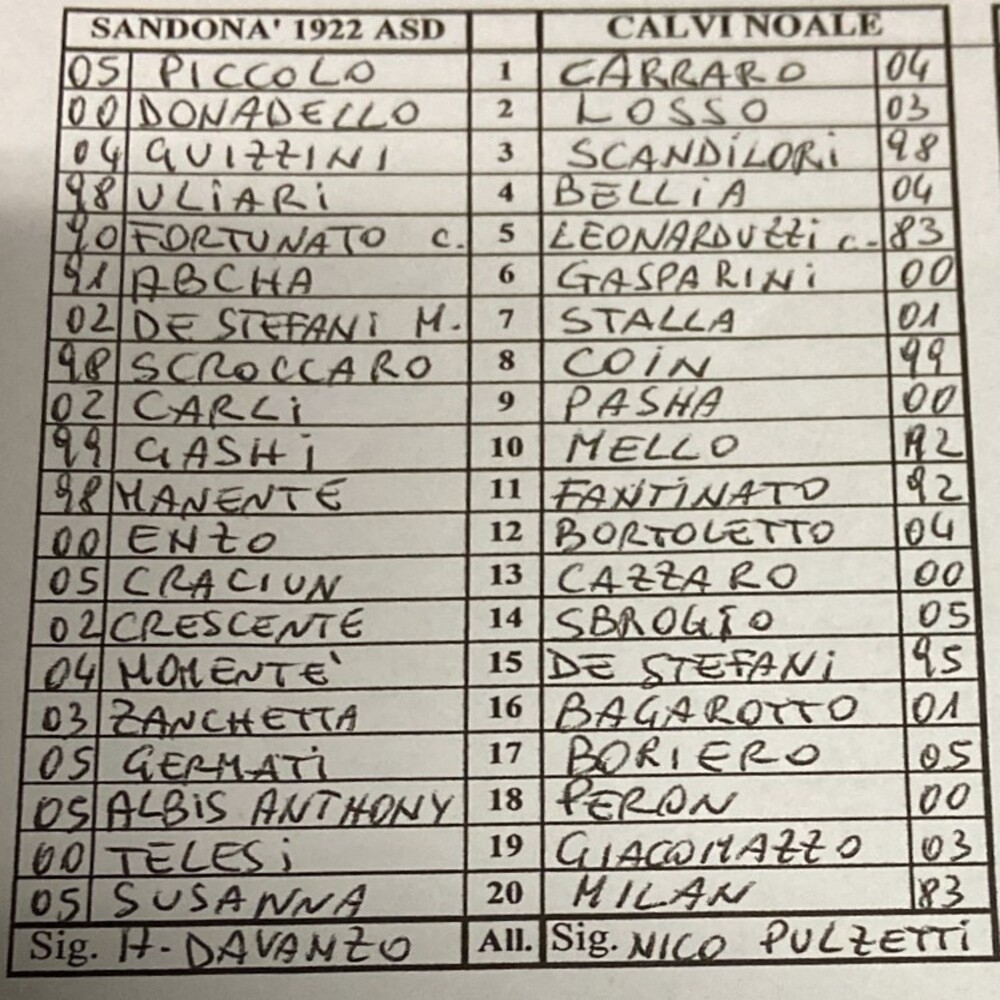 SANDONA' 1922 ASD CALVI NOALE
05 PICCOLO 1 CARRARO 04
00 DONADELLO 2 LOSSO 03
04 GUIZZINI 3 SCANDiLORi 98
98 ULiARi 4 BELLiA 04
90 FORTUNATO c. 5 LEONARDUZZi c. 83
91 ABCHA 6 GASPARiNi 00
02 DE STEFANi M. 7 STALLA 01
98 SCROCCARO 8 COiN 99
02 CARLi 9 PASHA 00
99 GASHi 10 MELLO 92
98 MANENTE 11 FANTiNATO 92
00 ENZO 12 BORTOLETTO 04
05 CRACIUN 13 CAZZARO 00
02 CRESCENTE 14 SBROGIO 05
04 MOMENTE' 15 DE STEFANi 95
03 ZANCHETTA 16 BAGAROTTO 01
05 GERMATi 17 BORIERO 05
05 ALBiS ANTHONY 18 PERON 00
00 TELESi 19 GIACOMAZZO 03
05 SUSANNA 20 MILAN 83
Sig. H. DAVANZO All. Sig. NICO PULZETTi